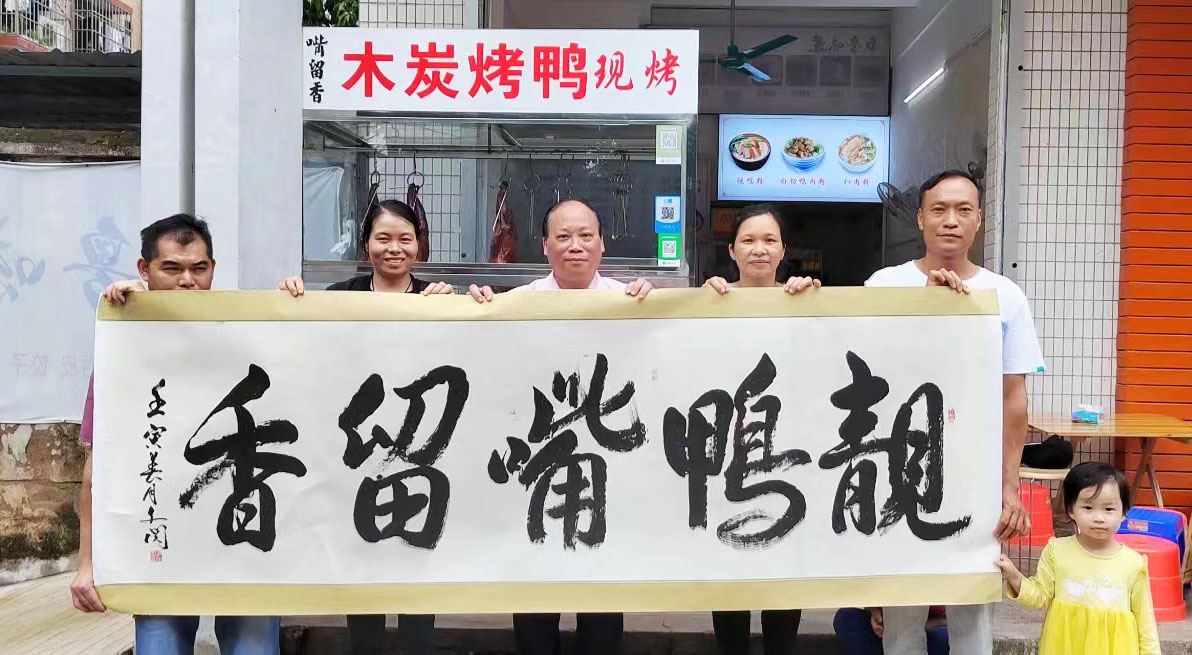 嘴留香
木炭烤鸭现烤
烧鸭粉 白切鸭肉粉 扣肉粉
靚鴨嘴留香
壬寅
皮 饺子